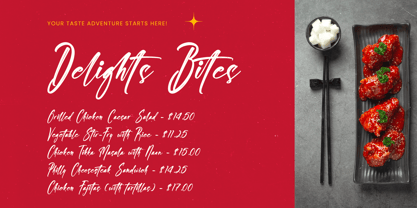 YOUR TASTE ADVENTURE STARTS HERE!
Delights Bites
Grilled Chicken Caesar Salad - $14.50
Vegetable Stir-Fry with Rice - $11.25
Chicken Tikka Masala with Naan - $15.00
Philly Cheesesteak Sandwich - $14.25
Chicken Fajitas (with tortillas) - $17.00